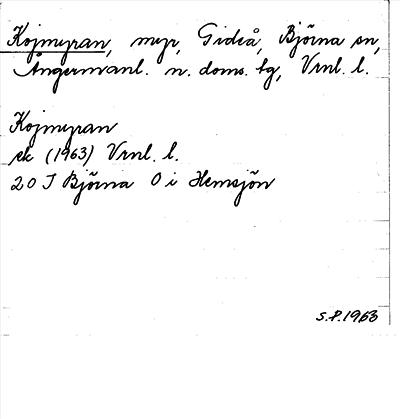 Kojmyran, myr, Gideå, Björna sn,
Ångermanl. n. doms. hg, Vrnl. l.
Kojmyran
ek (1963) Vrnl. l.
20 J Björna O i Hemsjön
S.P. 1963